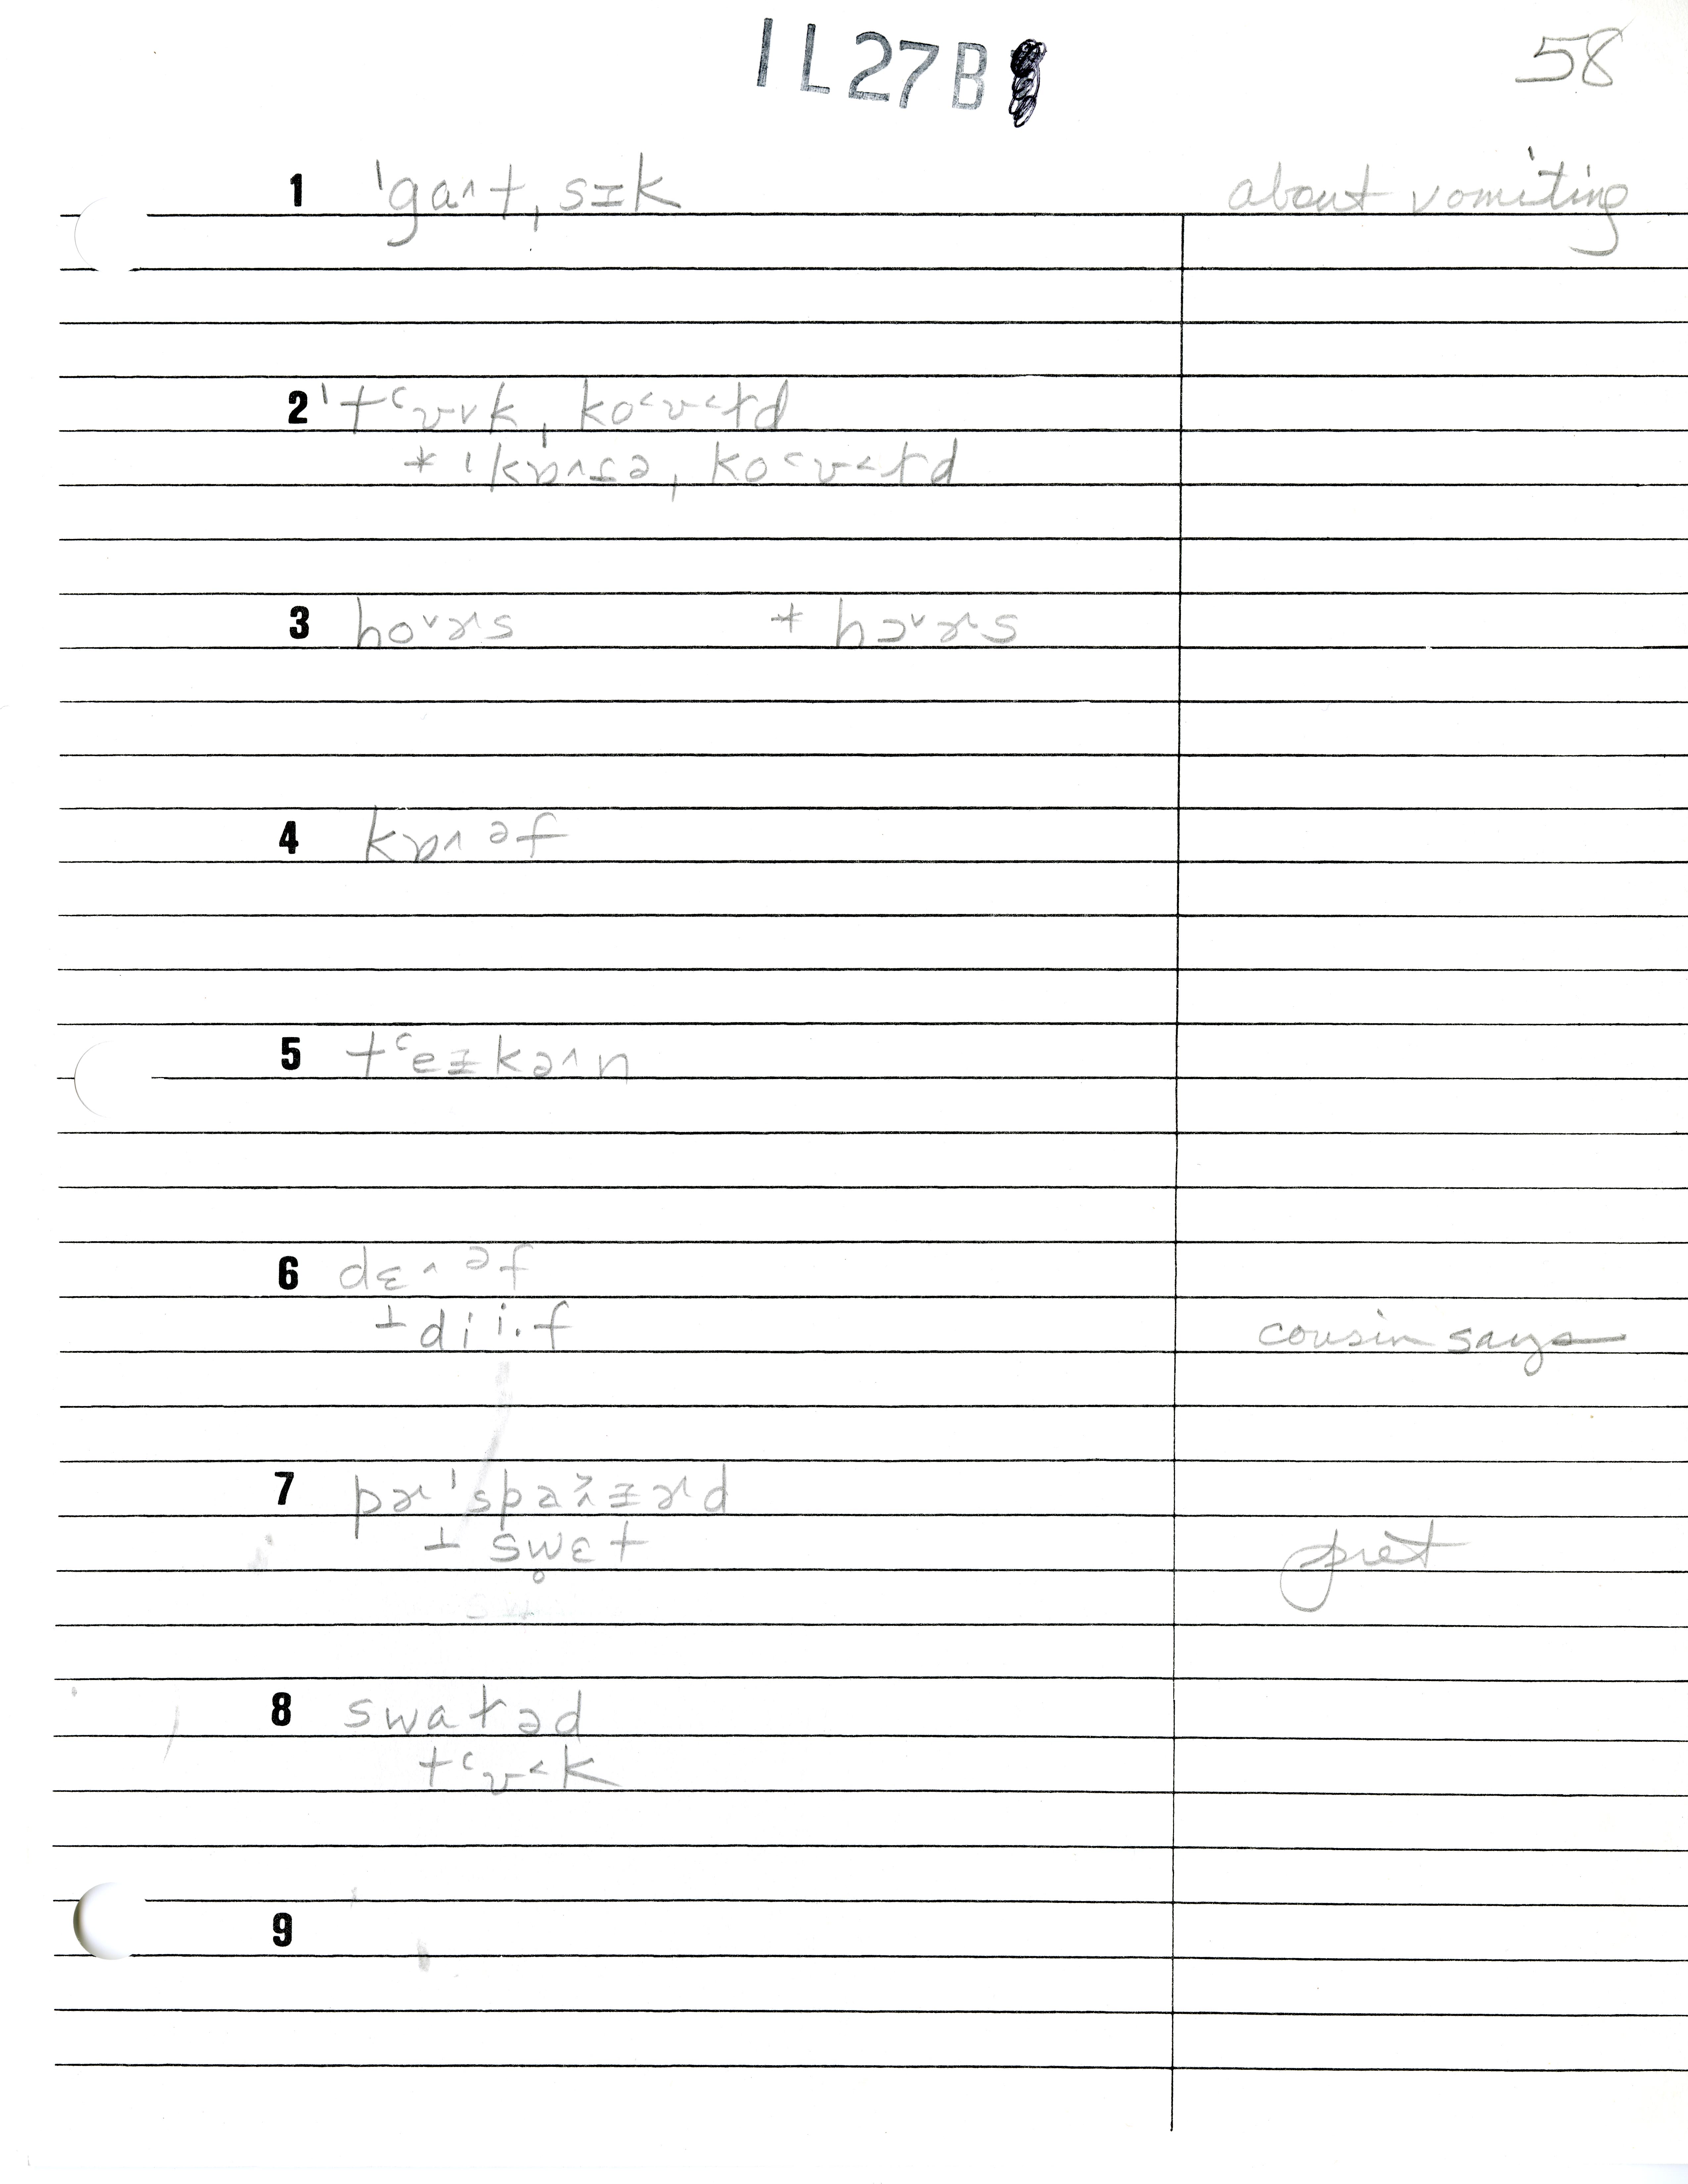 IL27B
58
1 ˈga˄t ˌsɪk about vomiting
2 ˈtʿʊ˅k ˌko˂ʊ˂t̬d
* ˈkɒ˄ɪə ˌko˂ʊ˂t̬d
3 ho˅ɚs * hɔ˅ɚs
4 kɒ˄əf
5 tʿeɪkə˄n
6 dɛ˄əf
⊥ dii·f cousin says
7 pɚˈspaɪɚd
⊥ sw̥ɛt pret
8 swat̬əd
tʿʊ˂k
9